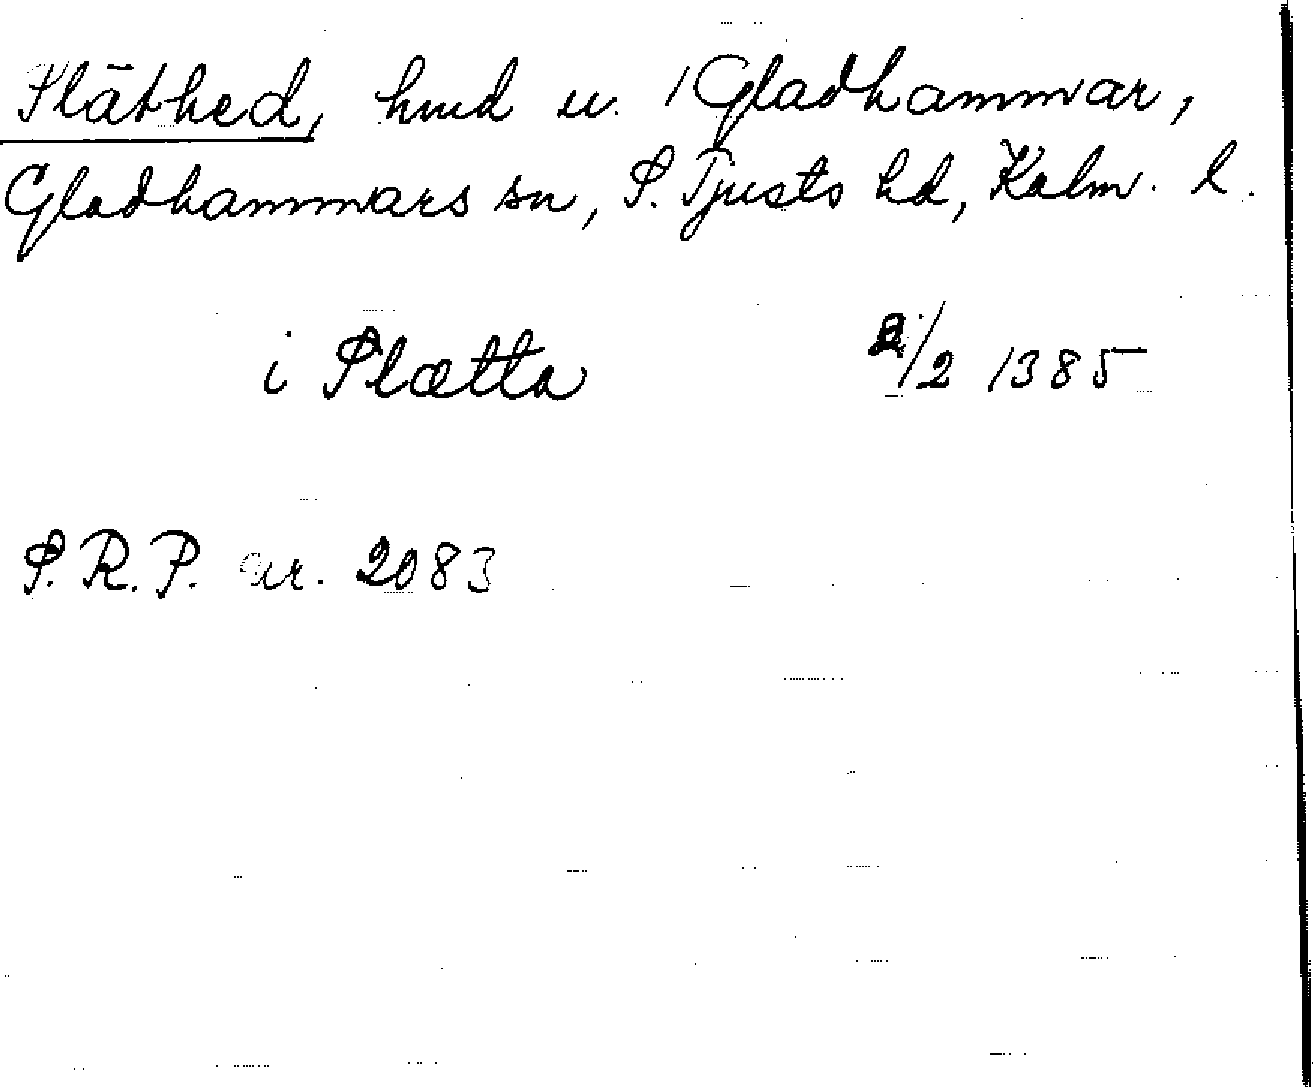 Släthed, hmd u. /Gladhammar,
Gladhammars sn, S. Tjusts hd, Kalm. l.
i Slætta 2/2 1385
S.R.P. nr. 2083